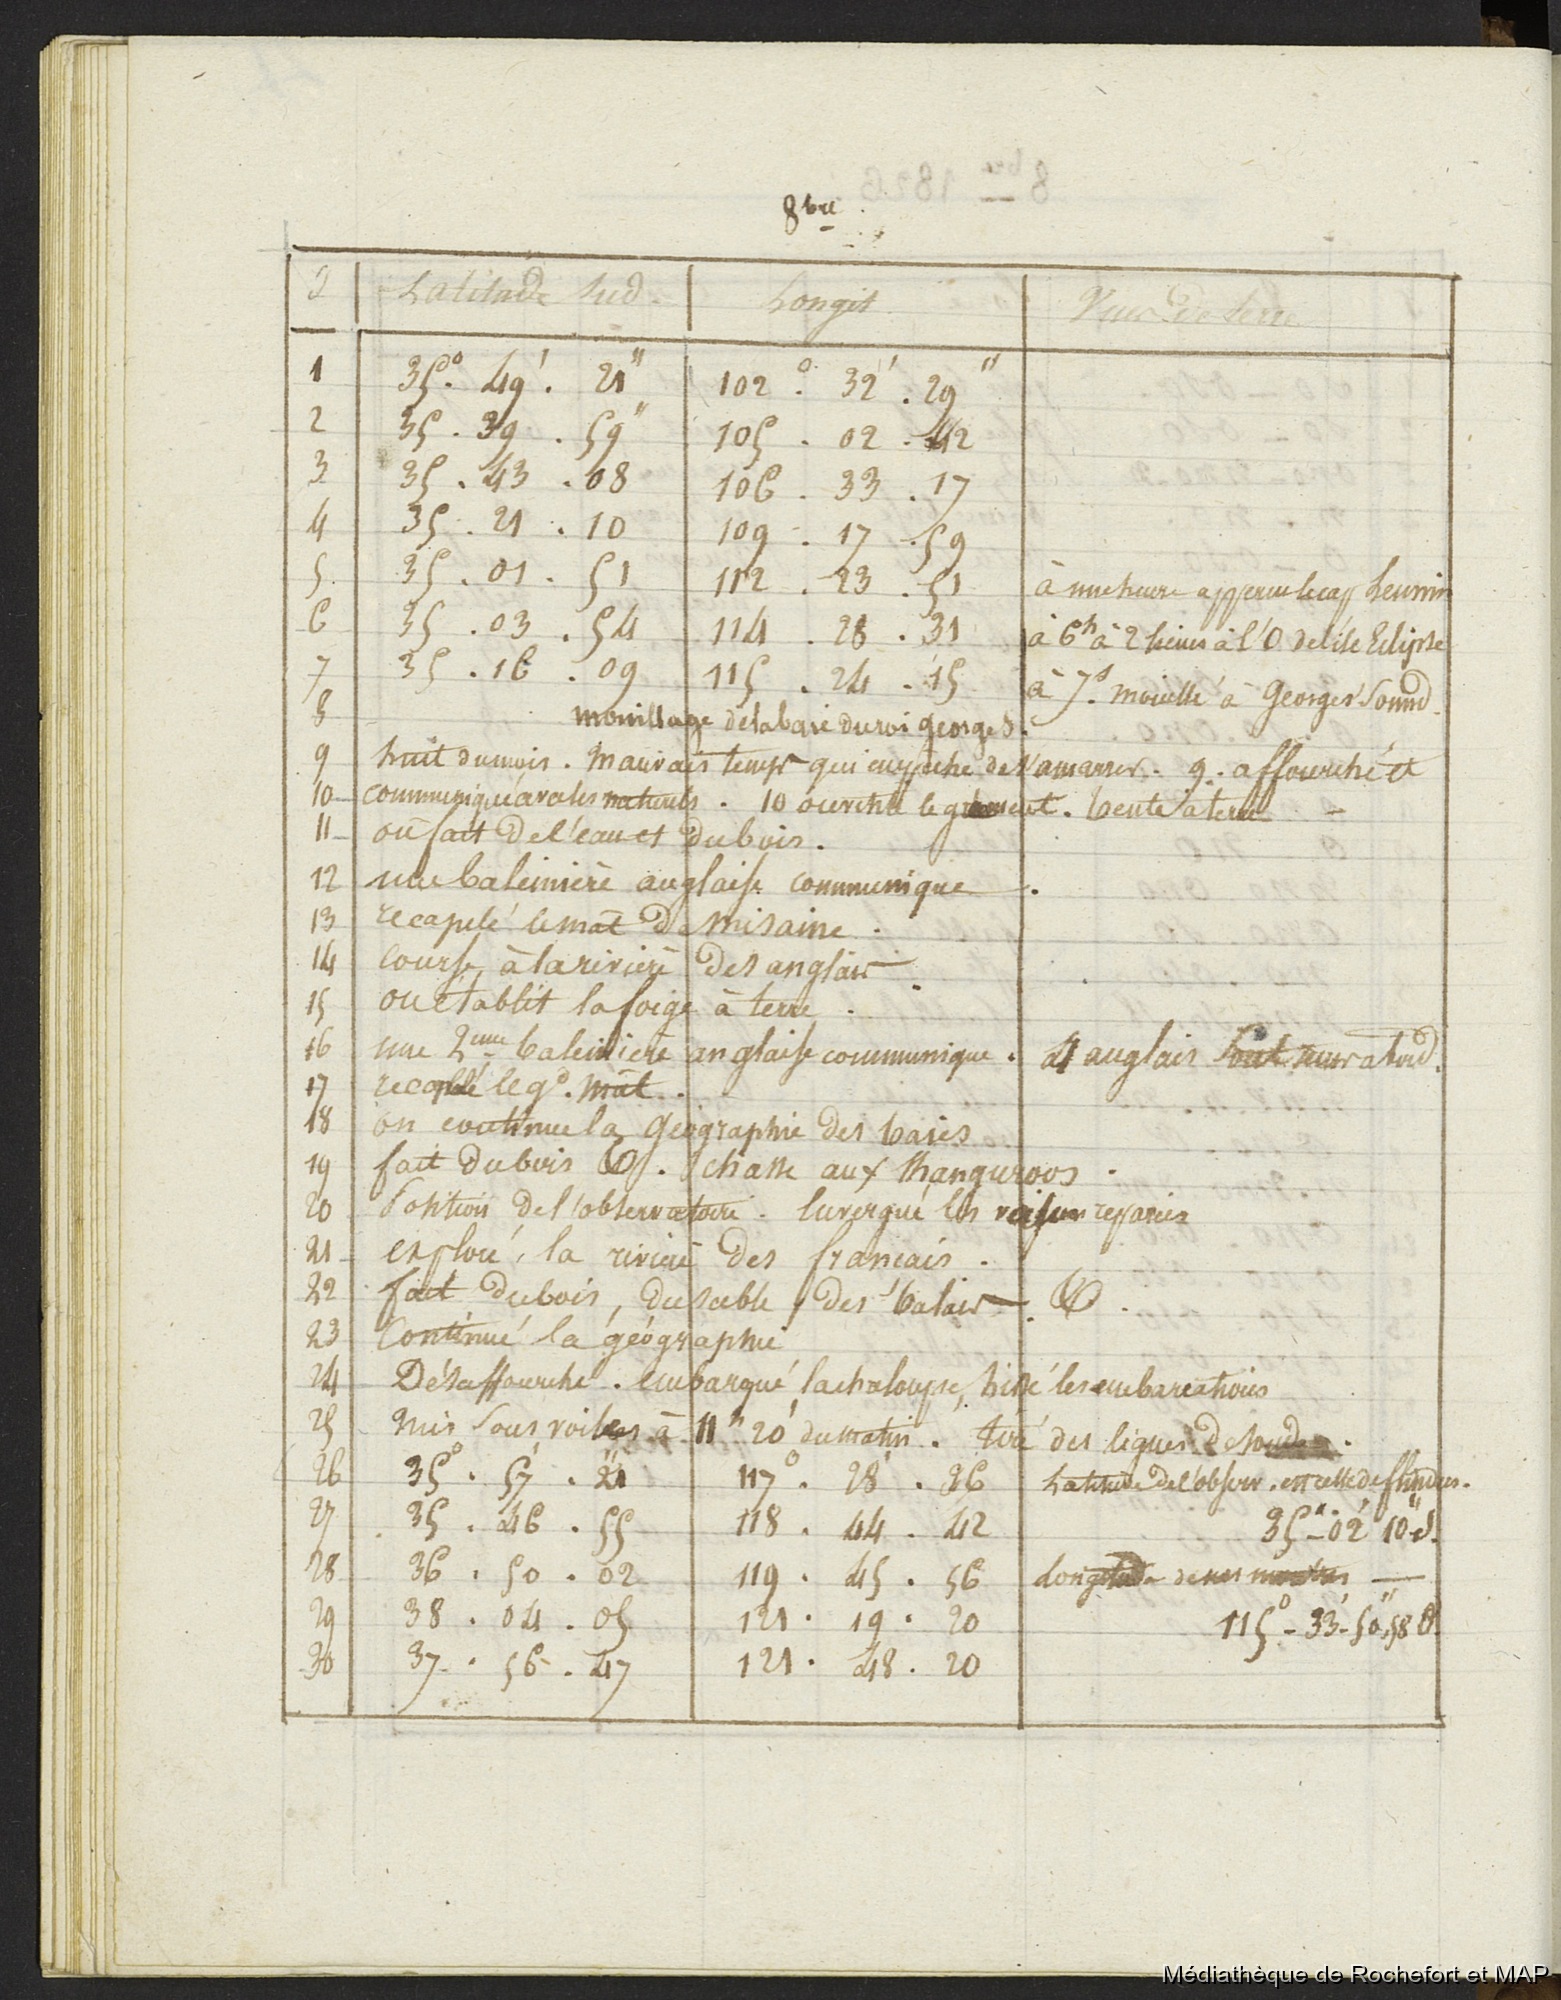 8bre
J Latitude Sud Longit Vues de terre
1 35° . 49' . 21" 102° . 32' . 29"
2 35 . 39 . 59" 105 . 02 . 42
3 35 . 43 . 08 106 . 33 . 17
4 35 . 21 . 10 109 . 17 . 59
5 35 . 01 . 51 112 . 23 . 51 à une heure apperçu le cap Leuwin
6 35 . 03 . 54 114 . 28 . 31 à 6h à 2 lieues à l'O de l'ile Eclipse
7 35 . 16 . 09 115 . 24 . 15 à 7h mouillé à Georges' Sound
8 mouillage de la baie du roi georges.
9 huit du mois . mauvais temps qui empêche de s'amarrer . 9 . affourché et
10 communiqué avec les naturels . 10 le gréement . tente à terre
11 on fait de l'eau et du bois .
12 une baleinière anglaise communique .
13 recapelé le mât de misaine .
14 course à la rivière des anglais .
15 on établit la forge à terre .
16 une 2eme baleinière anglaise communique . anglais sont à bord .
17 recapelé le gd . mât .
18 on continue la géographie des baies
19 fait du bois . chasse aux Kanguroos .
20 de l'observatoire . les réparées
21 exploré la rivière des francais .
22 fait du bois , du sable , des balais .
23 Continué la géographie
24 Désaffourché . embarqué la chaloupe, hissé les embarcations
25 mis sous voiles à 11h 20' du matin . des lignes de sonde .
26 35° . 57' . 21" 117° . 28' . 36 Latitude de l'observ . est celle de flinders .
27 35 . 46 . 55 118 . 44 . 42 35° - 02' 10" S.
28 36 . 50 . 02 119 . 45 . 56 Longitude de nos montres —
29 38 . 04 . 05 121 . 19 . 20 115° - 33' - 50",58 O
30 37 . 56 . 47 121 . 48 . 20
Médiathèque de Rochefort et MAP